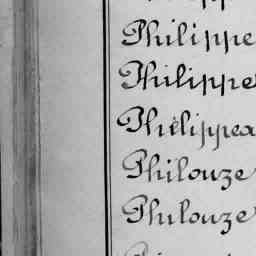 Philippe
Philippe
Philippea
Philouze
Philouze